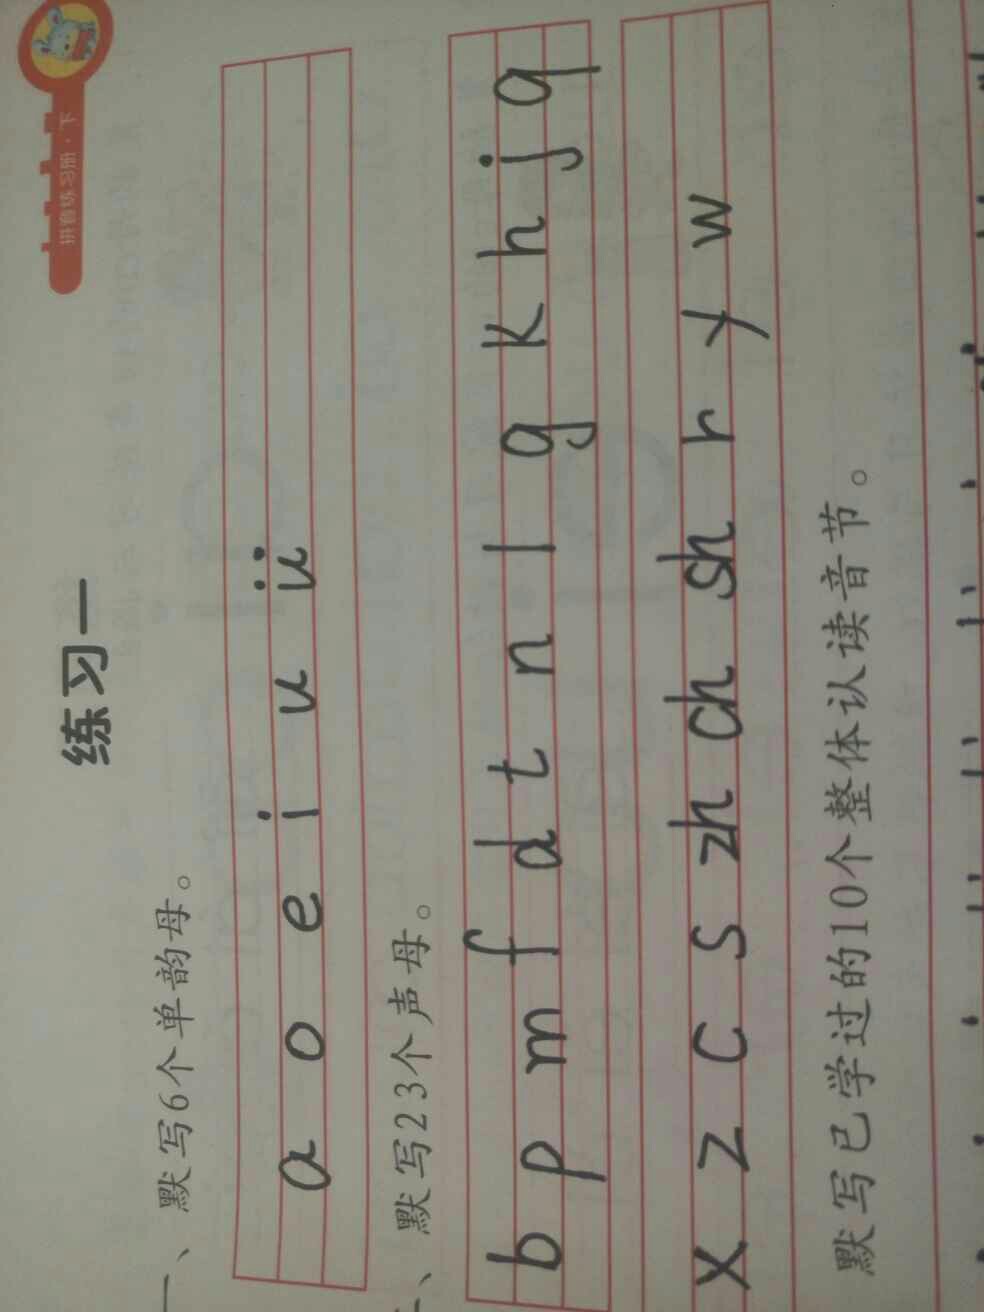 拼音练习册·下
练习一
一、默写6个单韵母。
a o e i u ü
、默写23个声母。
b p m f d t n l g k h j q
x z c s zh ch sh r y w
默写已学过的10个整体认读音节。